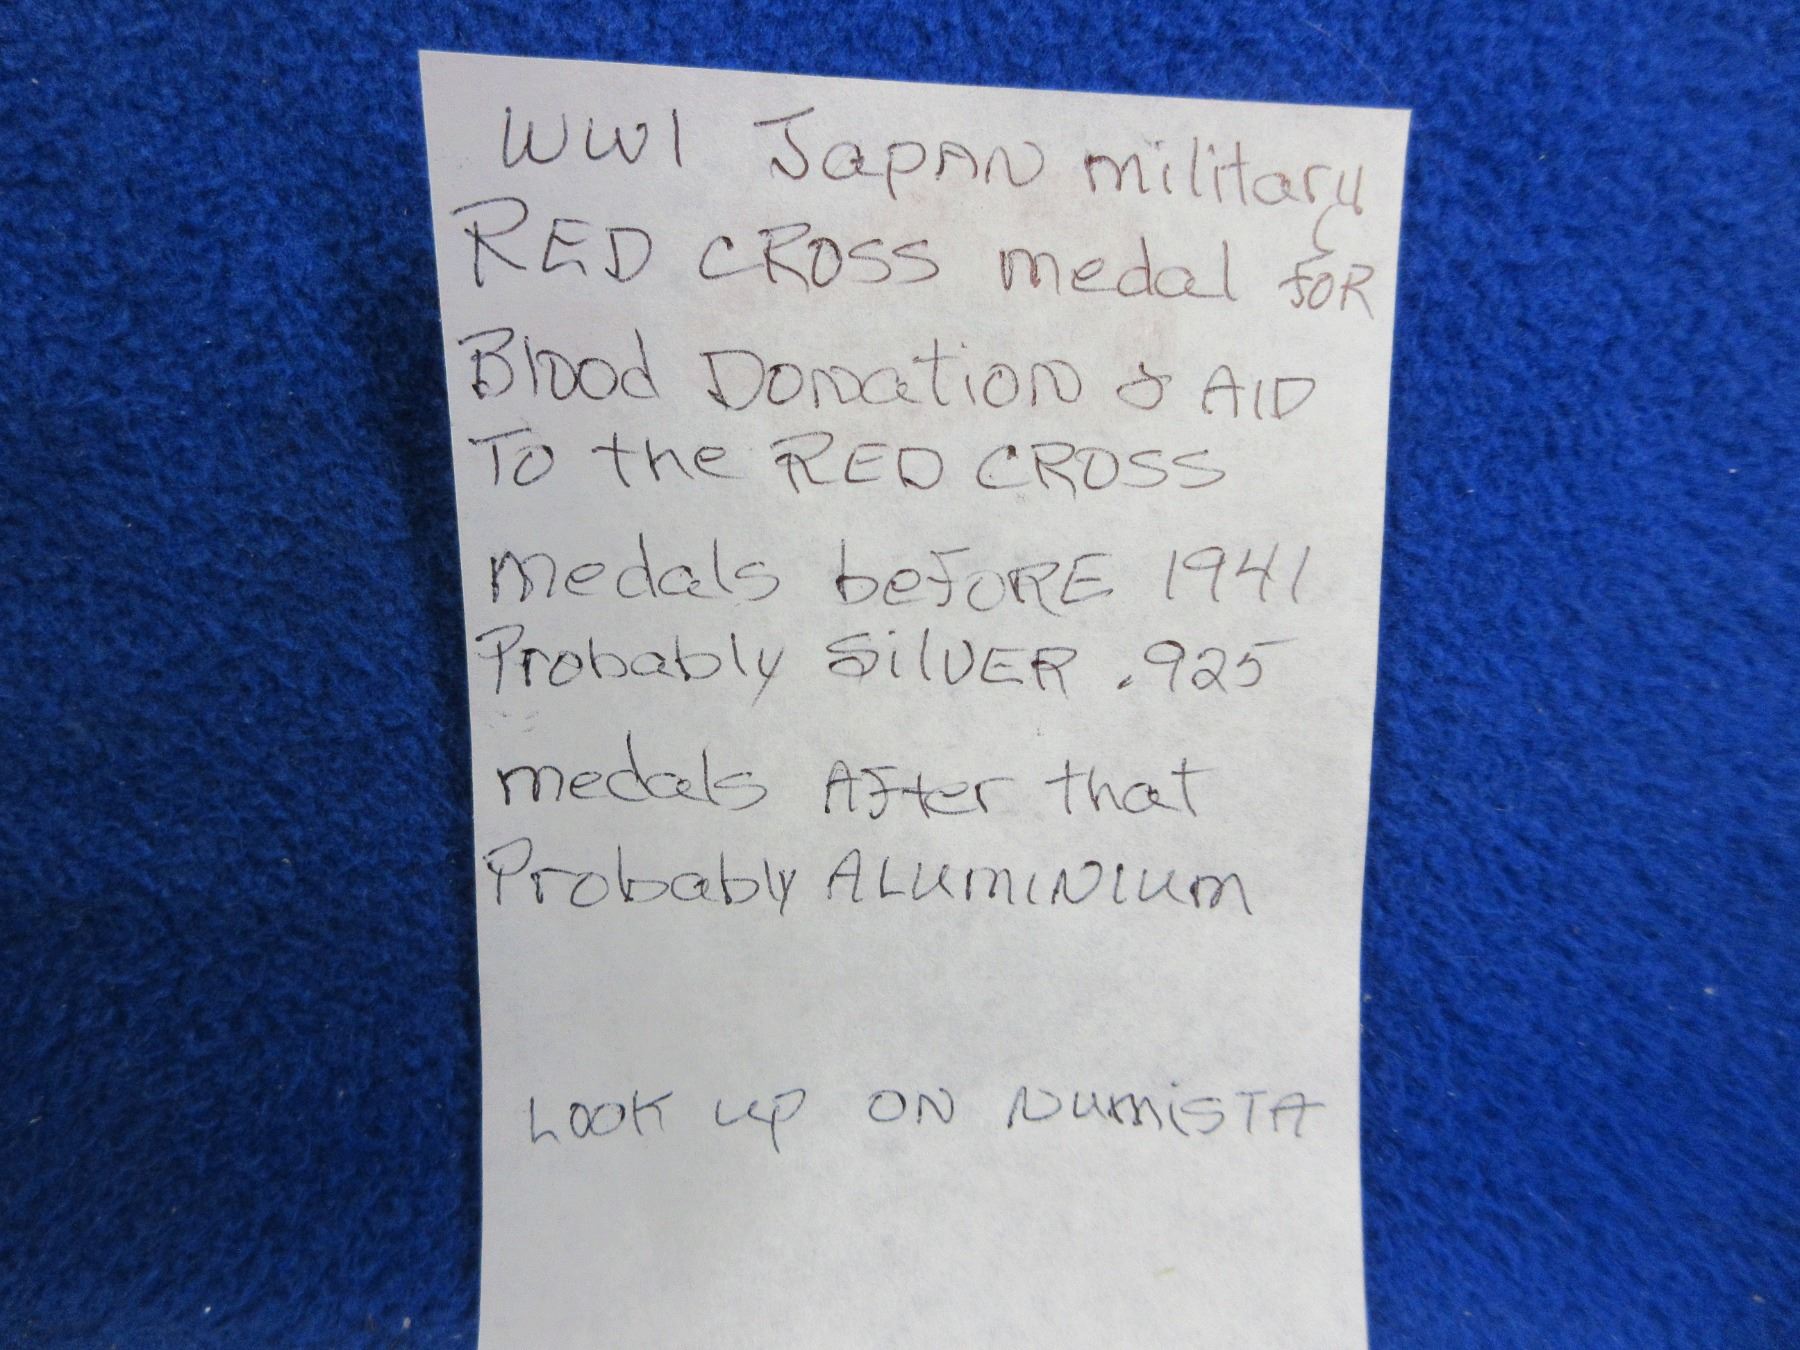 WW1 Japan military
RED CROSS medal for
Blood Donation & AID
To the RED CROSS
medals before 1941
Probably SilvER .925
medals After that
Probably ALUMINIUM
LOOK up ON NumisTA